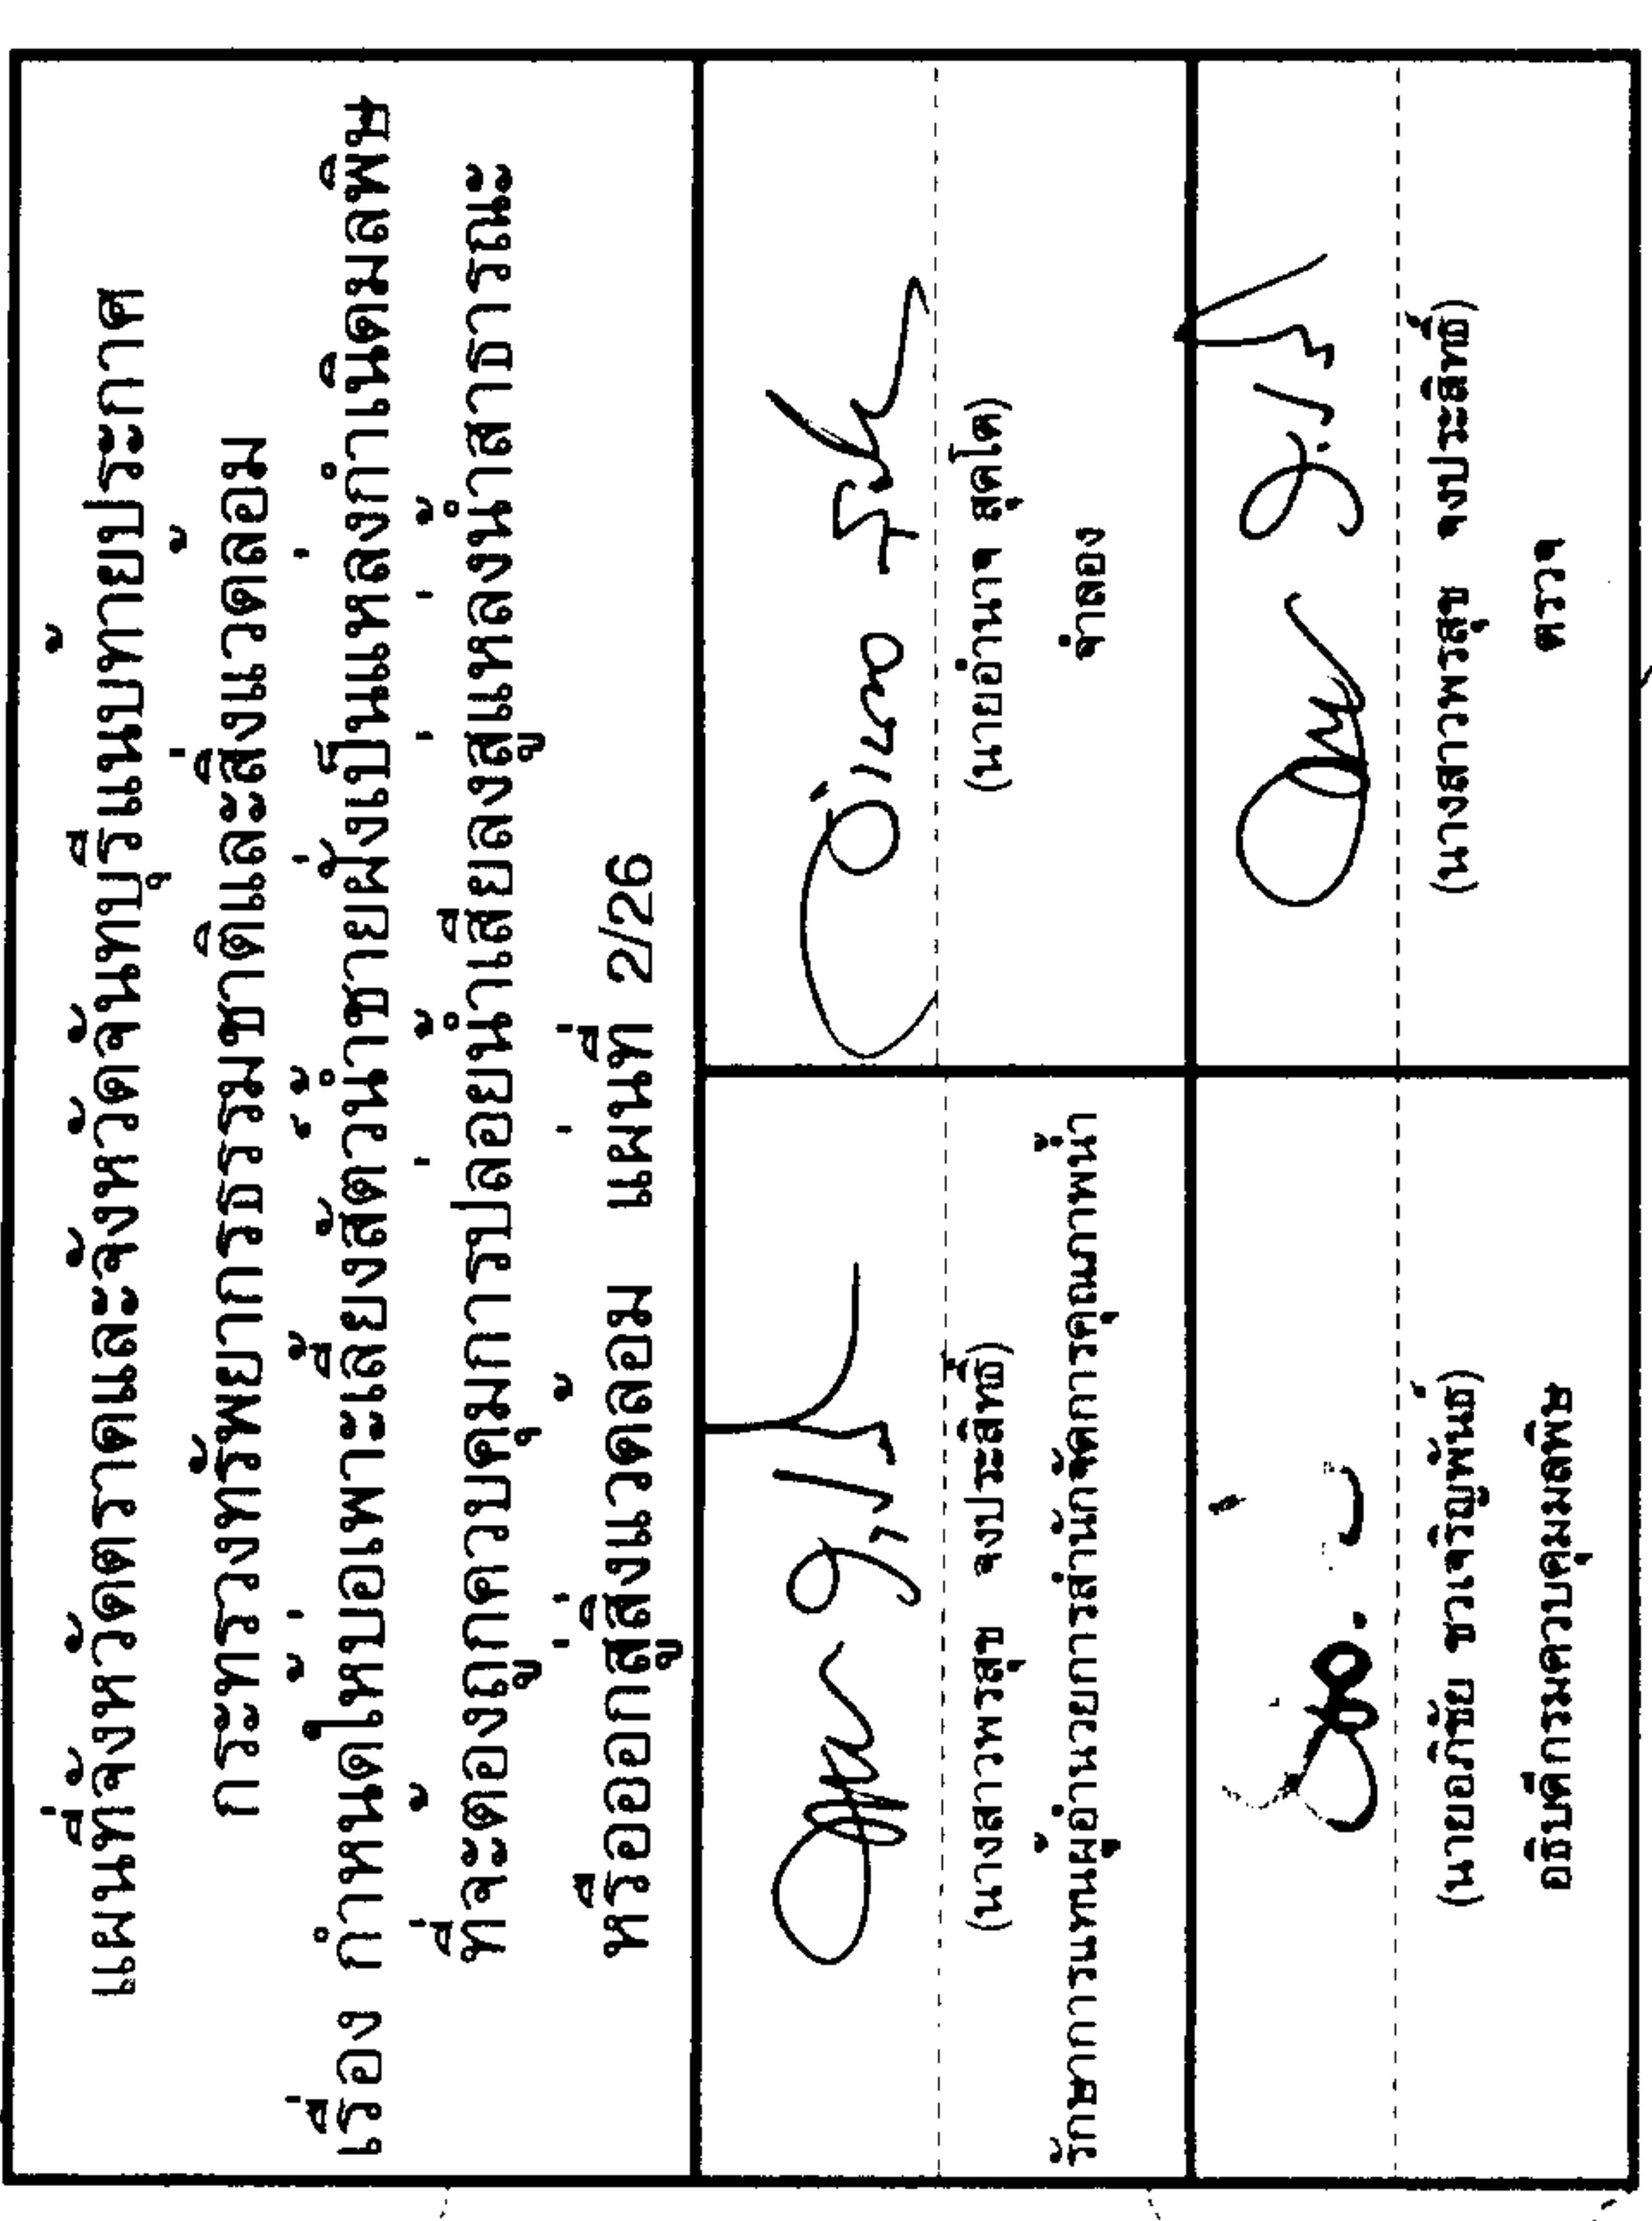 แผนที่จังหวัดตราดและจังหวัดจันทบุรีแนบท้ายประกาศ
กระทรวงทรัพยากรธรรมชาติและสิ่งแวดล้อม
เรื่อง กำหนดให้บ่อเพาะเลี้ยงสัตว์น้ำชายฝั่งเป็นแหล่งกำเนิดมลพิษ
ที่จะต้องถูกควบคุมการปล่อยน้ำเสียลงสู่แหล่งน้ำสาธารณะ
หรือออกสู่สิ่งแวดล้อม แผ่นที่ 2/26
(นางสาวพรสุข จงประสิทธิ์)
รักษาการแทนผู้อำนวยการสำนักจัดการคุณภาพน้ำ
(นายอำนาจ สุดโต)
จำลอง
(นายอภิชัย ชวเจริญพันธ์)
อธิบดีกรมควบคุมมลพิษ
(นางสาวพรสุข จงประสิทธิ์)
ตรวจ